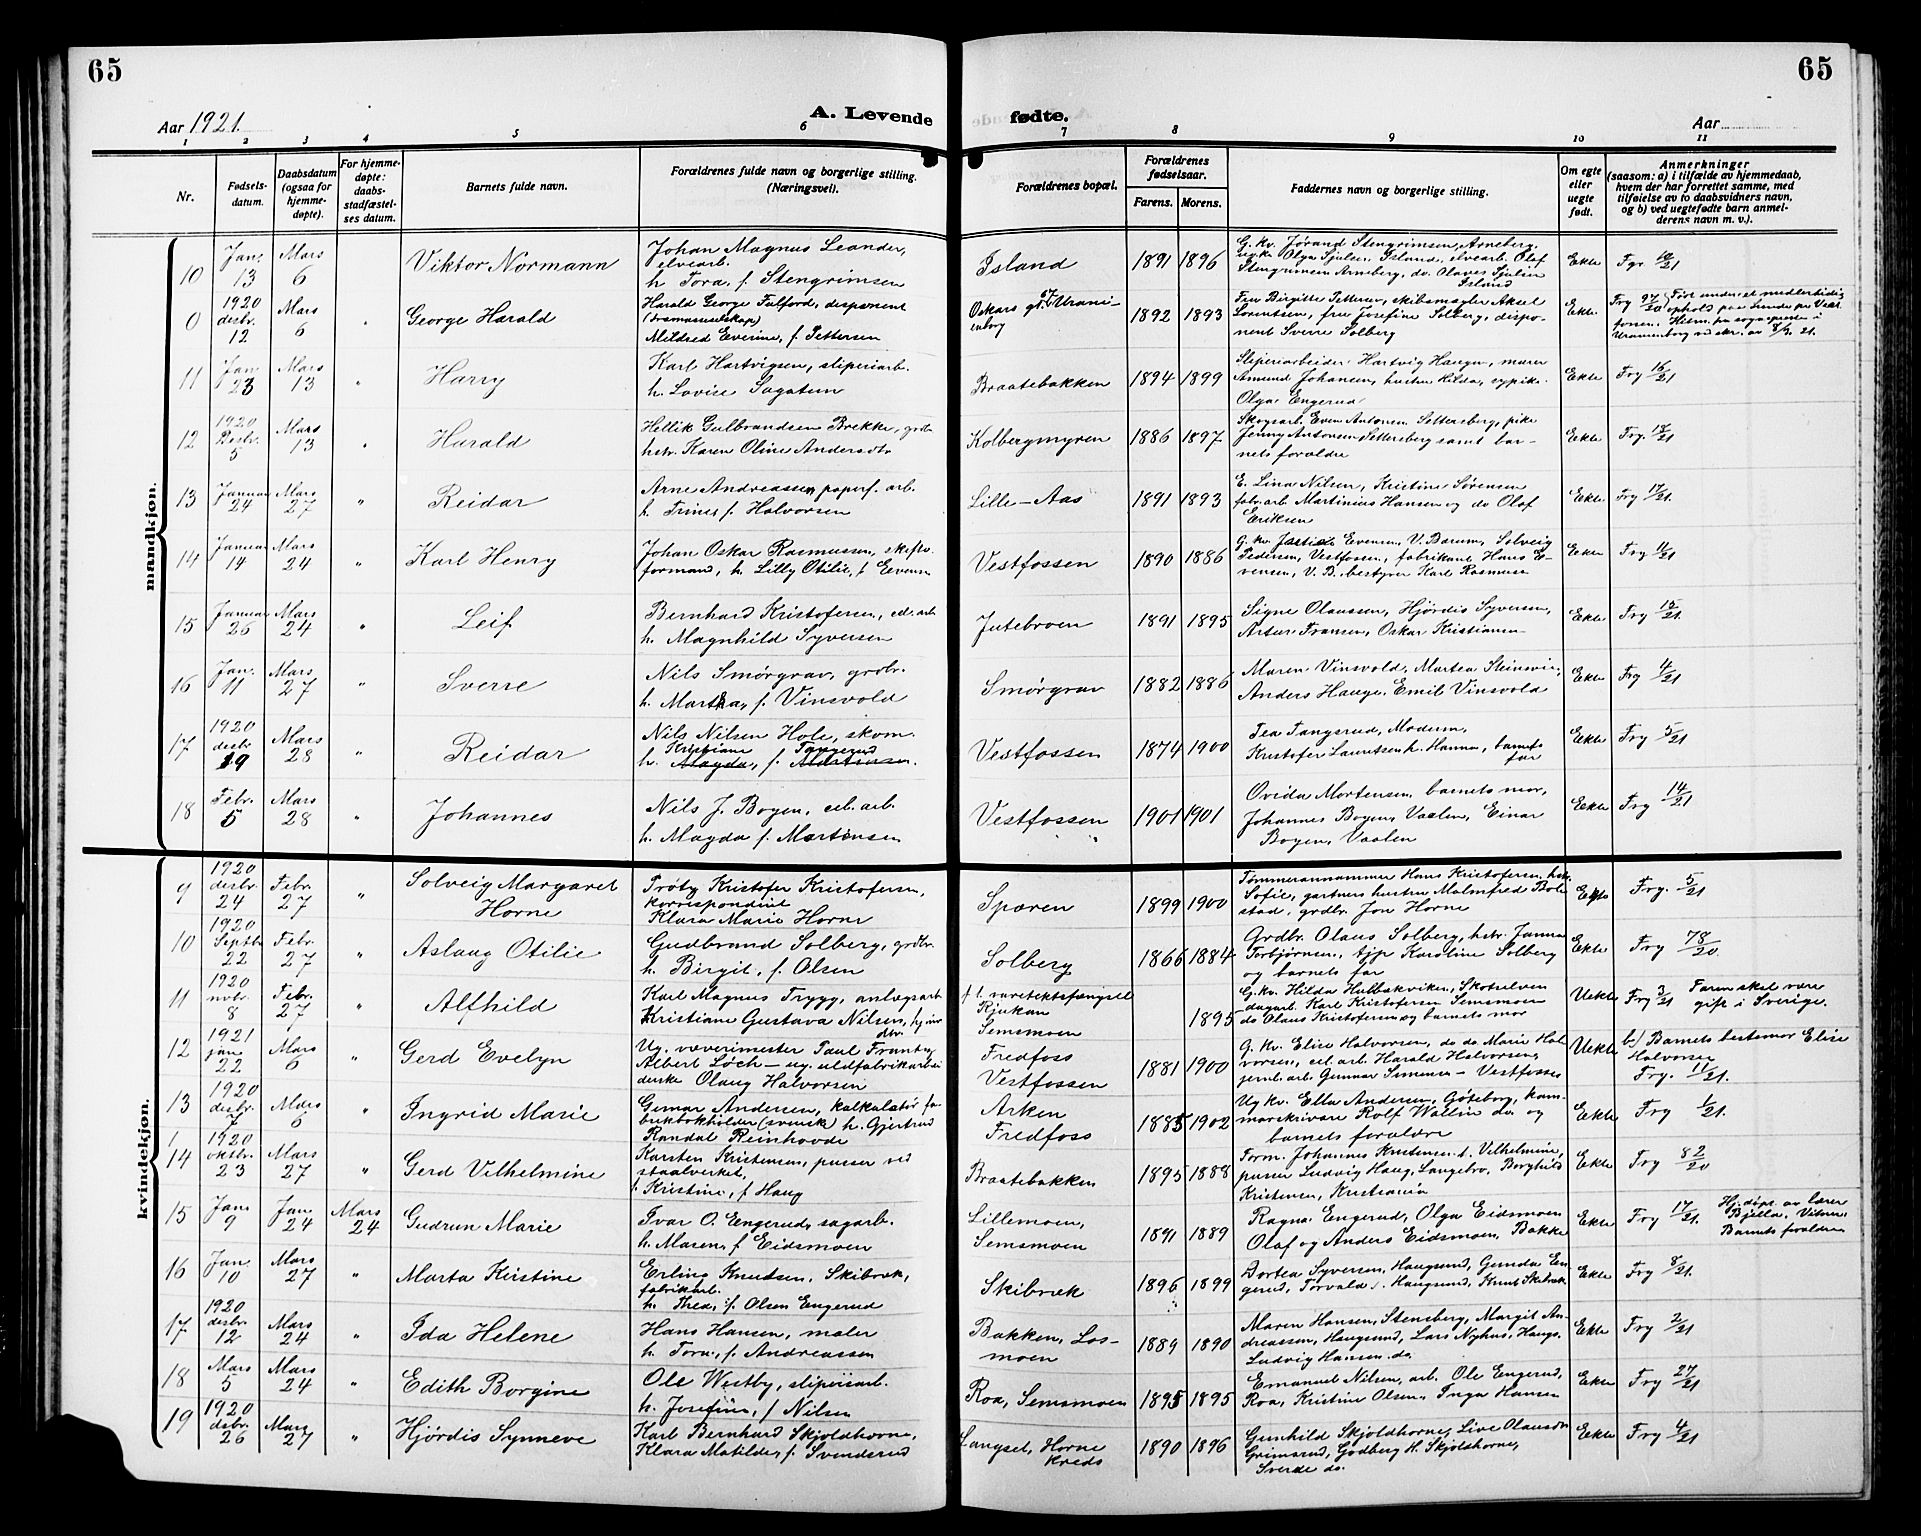 65
65
Aar 1921.
A. Levende
fødte.
Aar
1 2 3 4 5 6 7 8 9 10 11
Nr.
Fødsels-
datum.
Daabsdatum
(ogsaa for
hjemme-
døpte).
For hjemme-
døpte:
daabs-
stadfæstel-
ses datum.
Barnets fulde navn.
Forældrenes fulde navn og borgerlige stilling.
(Næringsvei).
Forældrenes bopæl.
Forældrenes
fødselsaar.
Farens. Morens.
Faddernes navn og borgerlige stilling.
Om egte
eller
uegte
født.
Anmerkninger
(saasom: a) i tilfælde av hjemmedaab,
hvem der har forrettet samme, med
tilføielse av to daabsvidners navn,
og b) ved uegtefødte barn anmel-
derens navn m. v.).
mandkjøn.
10 Jan. 13 Mars 6 Viktor Normann
Johan Magnus Leander,
elvearb.
h. Tora, f. Stengrimsen
Island 1891 1896
G. kv. Jørand Stengrimsen, Arneberg,
Olga Sjulsen, Island, elvearb. Olaf
Stengrimsen Arneberg, do. Olaves Sjulsen
Island
Ekte
0 1920 desbr. 12 Mars 6 " George Harald
Harald George Fulford, disponent
Mildred Everine, f. Pettersen
Oskars gt. 67 Urani-
enborg 1892 1893
Fru Birgitte Pettersen, skibsmegler Aksel
Sorentsen, fru Josefine Solberg, dispo-
nent Sverre Solberg
Ekte Frg 97/20 Født under et midlertidig
ophold paa Lunde pr. Vest-
fossen. Hitm. fra sognepresten i
Uranienborg ved skr. av 8/3 21.
11 Jan 23 Mars 13 " Harry
Karl Hartvigsen, sliperiarb.
h. Lovise Sagatun
Braatebakken 1894 1899
Sliperiarbeider Hartvig Haugn, murer
Amund Johansen, hustru Hilda, sypike
Olga Engerud
Ekte Frg 16/21
12 1920 Desbr. 5 Mars 13 " Harald
Hellik Gulbrandsen Brekke, grdbr.
hstr. Karen Oline Andersdtr.
Kolbergmyren 1886 1897
Skogsarb. Even Antonsen Settersberg, pike
Jenny Antonsen Settersberg samt bar-
nets forældre
Ekte Frg. 18/21
13 Januar 24 Mars 27 " Reidar
Arne Andreassen, paperf. arb.
h. Trine, f. Halvorsen
Lille-Aas 1891 1893
E. Lina Nilsen, Kristine Sørensen
fabr. arb. Martinius Hansen og do Olaf
Eriksen
Ekte Frg 17/21.
14 Januar 14 Mars 24 " Karl Henry
Johan Oskar Rasmussen, skifts-
formand, h. Lilly Otilie, f. Evensen
Vestfossen 1890 1886
Evensen, V. Bærum, Solveig
Pedersen, Vestfossen, fabrikant Hans E-
vensen, V. B., bestyrer Karl Rasmuss
Ekte Frg 11/21
15 Januar 26 Mars 24 " Leif
Bernhard Kristofersen, cel. arb.
h. Magnhild Syversen
Jutebroen 1891 1895
Signe Olaussen, Hjørdis Syversen,
Artur Fransen, Oskar Kristiansen
Ekte Frg 15/21.
16 Jan. 11 Mars 27 " Sverre
Nils Smørgrav, grdbr.
h. Martha, f. Vinsvold
Smørgrav 1882 1886
Maren Vinsvold, Martea Steinsvie,
Anders Hauge, Emil Vinsvold
Ekte Frg 4/21
17 1920 desbr. 29 Mars 28 " Reidar
Nils Nilsen Hole, skom.
Kristiane Tangerud
h. Magda, f. Martinsen.
Vestfossen 1874 1900
Tea Tangerud, Modum,
Kristofer Lauritsen h. Hanna, barnets
far
Ekte Frg 5/21
18 Febr. 5 Mars 28 " Johannes
Nils J. Bogen, cel. arb.
h. Magda f. Martinsen
Vestfossen 1901 1901
Ovida Mortensen, barnets mor,
Johannes Bogen, Vaalen, Einar
Bogen, Vaalen
Ekte Frg 14/21
kvindekjøn.
9 1920 desbr. 24 Febr. 27 " Solveig Margaret
Horne
Trøty Kristofer Kristofersen,
korrespondent
Klara Marie Horne
Sparen 1899 1900
Tømmerannammer Hans Kristofersen, hstr.
Sofie, gartners hustru Malmfred Bol-
stad, grdbr. Jon Horne
Ekte Frg. 5/21
10 1920 Septbr 22 Febr. 27 " Aslaug Otilie
Gudbrand Solberg, grdbr.
h. Birgit, f. Olsen
Solberg 1866 1884
Grdbr. Olaus Solberg, hstr. Janna
Torbjørnsen, tjp Karoline Solberg
og barnets far
Ekte Frg 78/20.
11 1920 novbr. 8 Febr. 27 " Alfhild
Karl Magnus Trygg, anlægsarb
Kristiane Gustava Nilsen,
f. t. varetektsfængsel
Rjukan
Semsmoen 1895
G. kv. Hilda Hulbakviken, Skotselven
dagarb. Karl Kristofersen Semsmoen
do Olaus Kristofersen og barnets mor
Uekte Frg 3/21 Faren skal være
gift i Sverige.
12 1921 jan. 22 Mars 6 " Gerd Evelyn
Ug. væverimester Paul Frantz
Albert Løch - ug. uldfabrikarbei
derske Olaug Halvorsen
Fredfoss
Vestfossen 1881 1900
G. kv. Elise Halvorsen, do do Marie Hal
vorsen, cel. arb. Harald Halvorsen,
jernb. arb. Gunnar Simensen - Vestfossen
Uekte b) Barnets bestemor Elise
Halvorsen
Frg. 11/21.
13 1920 desbr. 7 Mars 6 " Ingrid Marie
Gemar Andersen, kalkulatør fa-
brikbokholder (svensk) h. Gjertrud
Randal Reinhovde
Arken
Fredfoss 1885 1902
Ug kv. Ella Andersen, Gøteborg, kam-
marskrivare Rolf Wallin do. og
barnets forældre
Ekte Frg 1/21.
14 1920 oktbr. 23 Mars 27 " Gerd Vilhelmine
Karsten Kristensen, pusser ved
staalverket,
f. Kristine, f. Haug
Braatebakken 1895 1888
Form. Johannes Kristensen h. Vilhelmine,
pusser Ludvig Haug, Langebro, Borghild
Kristensen, Kristiania
Ekte Frg 82/20
15 Jan. 9 Jan 24 Mars 24 Gudrun Marie
Ivar O. Engerud, sagarb.
h. Maren, f. Eidsmoen
Lillemoen,
Semsmoen 1891 1889
Ragna Engerud, Olga Eidsmoen
Olaf og Anders Eidsmoen, Bakke
Ekte Frg 17/21. Hj. døpt av lærer
Bjella, Vitner:
Barnets forældre
16 Jan. 10 Mars 27 " Marta Kristine
Erling Knudsen, Skibræk,
fabrikarb.
h. Thea, f. Olsen Engerud
Skibræk 1896 1899
Dortea Syversen, Haugsund, Gunda En-
gerud, Torvald Haugsund, Knut Skibræk
Ekte Frg 8/21.
17 1920 desbr. 12 Mars 24 " Ida Helene
Hans Hansen, maler
h. Tora, f. Andreassen
Bakken, Los-
moen 1889 1890
Maren Hansen, Stensberg, Margit An-
dreassen, Haugsund, Lars Nyhus, Haugs.
Ludvig Hansen do.
Ekte Frg 2/21
18 Mars 5 Mars 24 " Edith Borgine
Ole Westby, sliperiarb.
h. Josefine, f. Nilsen
Roa, Semsmoen 1895 1895
Emanuel Nilsen, arb. Ole Engerud,
Roa, Kristine Olsen, Inga Hansen
Ekte Frg 27/21
19 1920 desbr. 26 Mars 27 " Hjørdis Synneve
Karl Bernhard Skjoldhorne,
Klara Matilde, f. Svenderud
Langset, Horne
kreds 1890 1896
Gunhild Skjoldhorne, Live Olausdtr
Grimsrud, Godberg H. Skjoldhorne,
Sverde do.
Ekte Frg 4/21